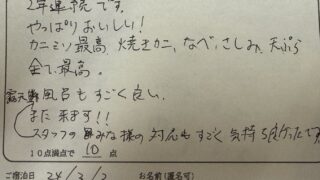 2年連続です。
やっぱりおいしい!
カニミソ最高、焼きカニ、なべ、さしみ、天ぷら
全て最高。
露天風呂もすごく良い。
また来ます!!
スタッフのみな様の対応もすごく気持ち良かったです
10点満点で 10 点
ご宿泊日 24 / 3 / 2 お名前(匿名可)